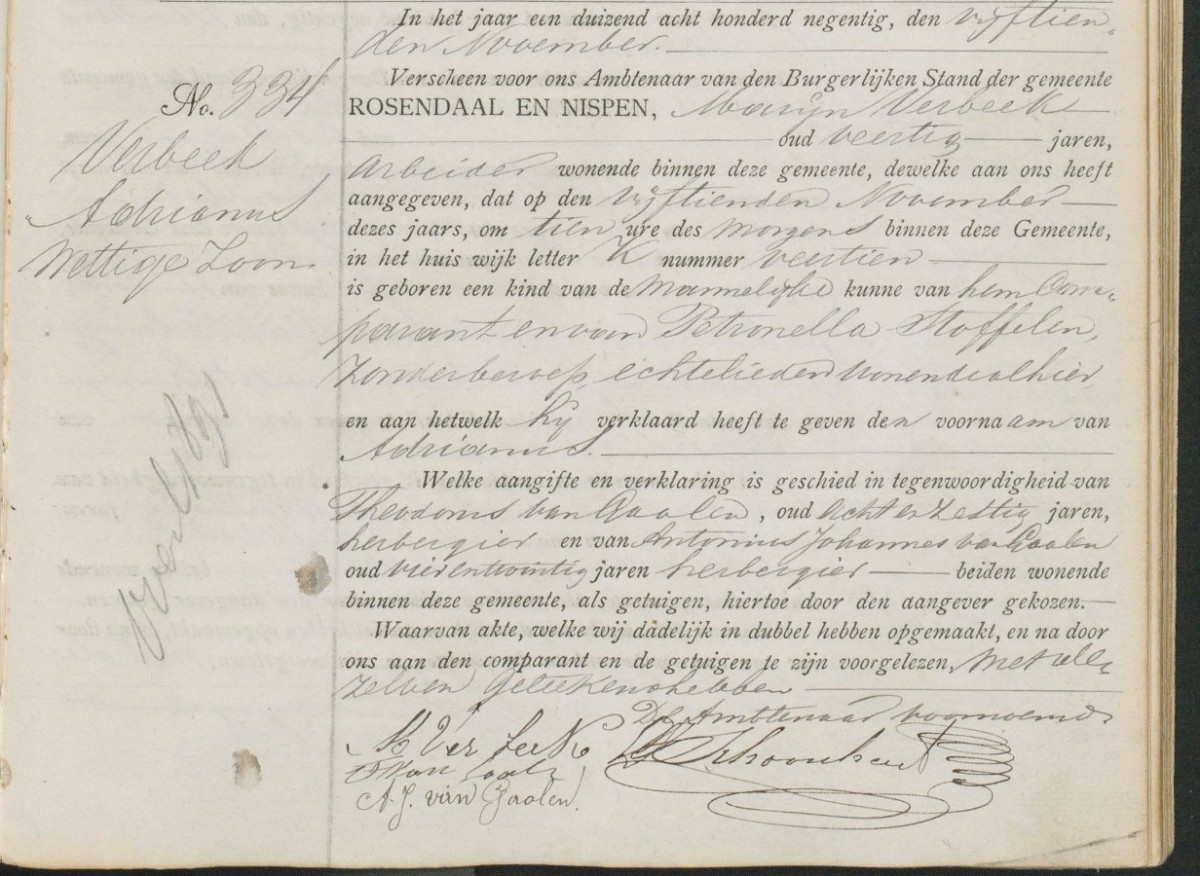 In het jaar een duizend acht honderd negentig, den vyftien
den November.
Verscheen voor ons Ambtenaar van den Burgerlijken Stand der gemeente
No. 334
ROSENDAAL EN NISPEN, Marijn Verbeek
oud veertig jaren,
Verbeek
Adrianus
wettige Zoon
arbeider wonende binnen deze gemeente, dewelke aan ons heeft
aangegeven, dat op den vyftienden November
dezes jaars, om tien ure des morgens binnen deze Gemeente,
in het huis wijk letter K nummer veertien
is geboren een kind van de mannelyke kunne van hem Com-
parant en van Petronella Stoffelen,
zonder beroep, echtelieden wonende alhier
en aan hetwelk hy verklaard heeft te geven den voornaam van
Adrianus.
Welke aangifte en verklaring is geschied in tegenwoordigheid van
Theodorus van Gaalen, oud acht en zestig jaren,
herbergier en van Antonius Johannes van Gaalen
oud vier en twintig jaren herbergier beiden wonende
binnen deze gemeente, als getuigen, hiertoe door den aangever gekozen.
Waarvan akte, welke wij dadelijk in dubbel hebben opgemaakt, en na door
ons aan den comparant en de getuigen te zijn voorgelezen, met del-
zelven geteekend hebben
De Ambtenaar voornoemd
M Verbeek
A. J. van Gaalen.